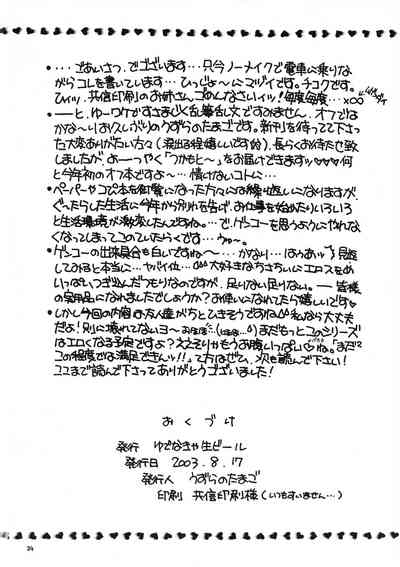 ・...ごあいさつ、でございます...只今ノーメイクで電車に乗りな
がらコレを書いています...ひっじょーにマヅイです。チコクです。
ひィッ、共信印刷のお姉さん、ごめんなさいィッ!毎度毎度...×○○
・ーと、ゆーワケですさまじく乱筆乱文ですみません。オフでは
かな〜りお久しぶりのうずらのたまごです。新刊を待ってて下さっ
た大変ありがたい方々(混出る程嬉しいです)、長らくお待たせ致
しましたが、よーっやく「つかもと〜」をお届けできます♡♡♡何
と今年初のオフ本ですよ〜...情けないコトに...
・ペーパーやコピ本を御覧になった方々には繰り返しになりますが、
ぐったらした生活に今年から別れを告げ、お仕事を始めたりいろいろ
と生活環境が激変したんですね。...で、ゲンコーを思うようにやれな
くなってしまってこのていたらくです...うゅ〜。
・ゲンコーの出来具合も白いですね〜...かなり...はうあッ!見返
してみると本当に...ヤバイ位...大好きなちちちぃにエロスをめ
いっぱいつぎ込んだつもりなのですが、足りない足りない。ー皆様
の実用品になれましたでしょうか?お使いになれてたら嬉しいです♡
・しかし今回の内容は友人座がちとひきそうですね私なら大丈夫
だよ!別に壊れてないヨ〜おほほ...(ほほほ...)まだもっとこのシリーズ
はエロくなる予定ですよ?ええそりゃもうお腹いっぱい♡ね。「まだ
この程度では満足できんッ!!」て方はぜひ、次を読んで下さい!
ココまで読んで下さってありがとうございました!
おくづけ
発行 ゆでなきゃ生ビール
発行日 2003.8.17
発行人 うずらのたまご
印刷 共信印刷様(いつもすいません...)
24